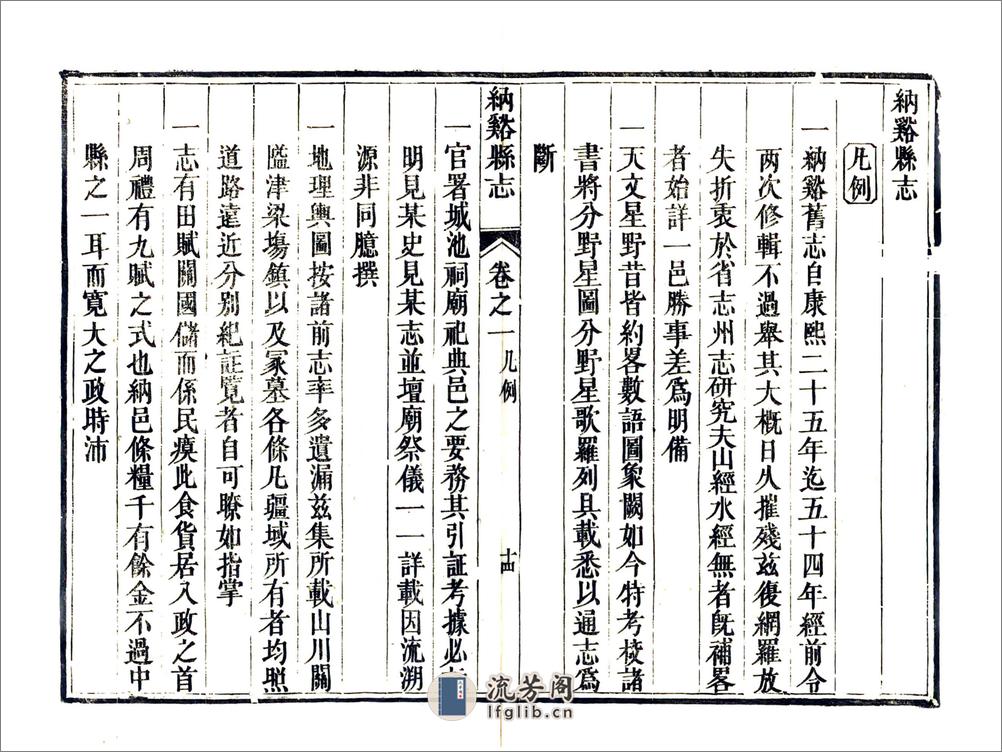 納谿縣志
凡例
一納谿舊志自康熙二十五年迄五十四年經前令
兩次修輯不過舉其大概日久摧殘兹復網羅放
失折衷於省志州志研究夫山經水經無者旣補畧
者始詳一邑勝事差爲明備
一天文星野昔皆約畧數語圖象闕如今特考校諸
書將分野星圖分野星歌羅列具載悉以通志爲
斷
納谿縣志 卷之一 凡例 十四
一官署城池祠廟祀典邑之要務其引証考據必
明見某史見某志並壇廟祭儀一一詳載因流溯
源非同臆撰
一地理輿圖按諸前志率多遺漏兹集所載山川關
隘津梁塲鎮以及冢墓各條凡疆域所有者均照
道路遠近分別紀註覽者自可瞭如指掌
一志有田賦關國儲而係民瘼此食貨居八政之首
周禮有九賦之式也納邑條糧千有餘金不過中
縣之一耳而寬大之政時沛
流芳阁
lfglib.cn